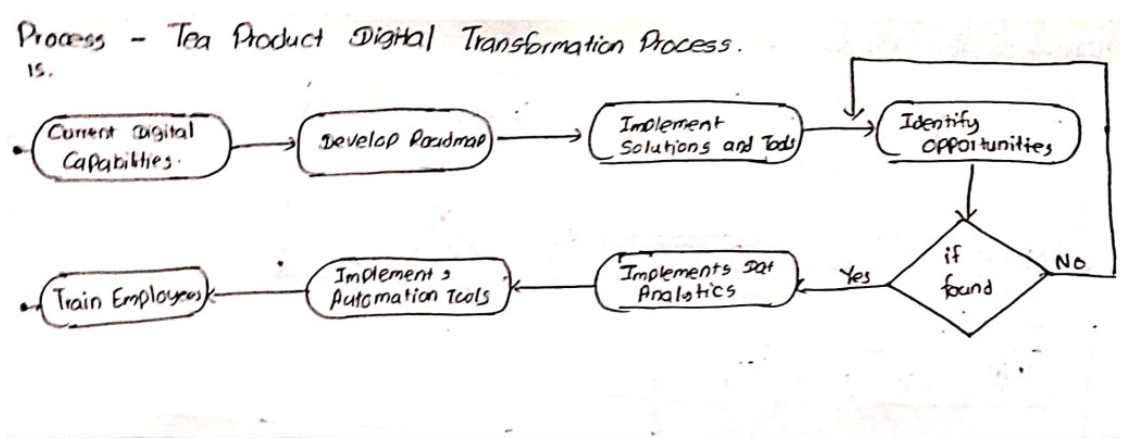 Process - Tea Product Digital Transformation Process.
15.
Current Digital
Capabilities.
Develop Roadmap
Implement
Solutions and Tools
Identify
Opportunities
if
found
No
Yes
Implements Dat
Analytics
Implement s
Automation Tools
Train Employees